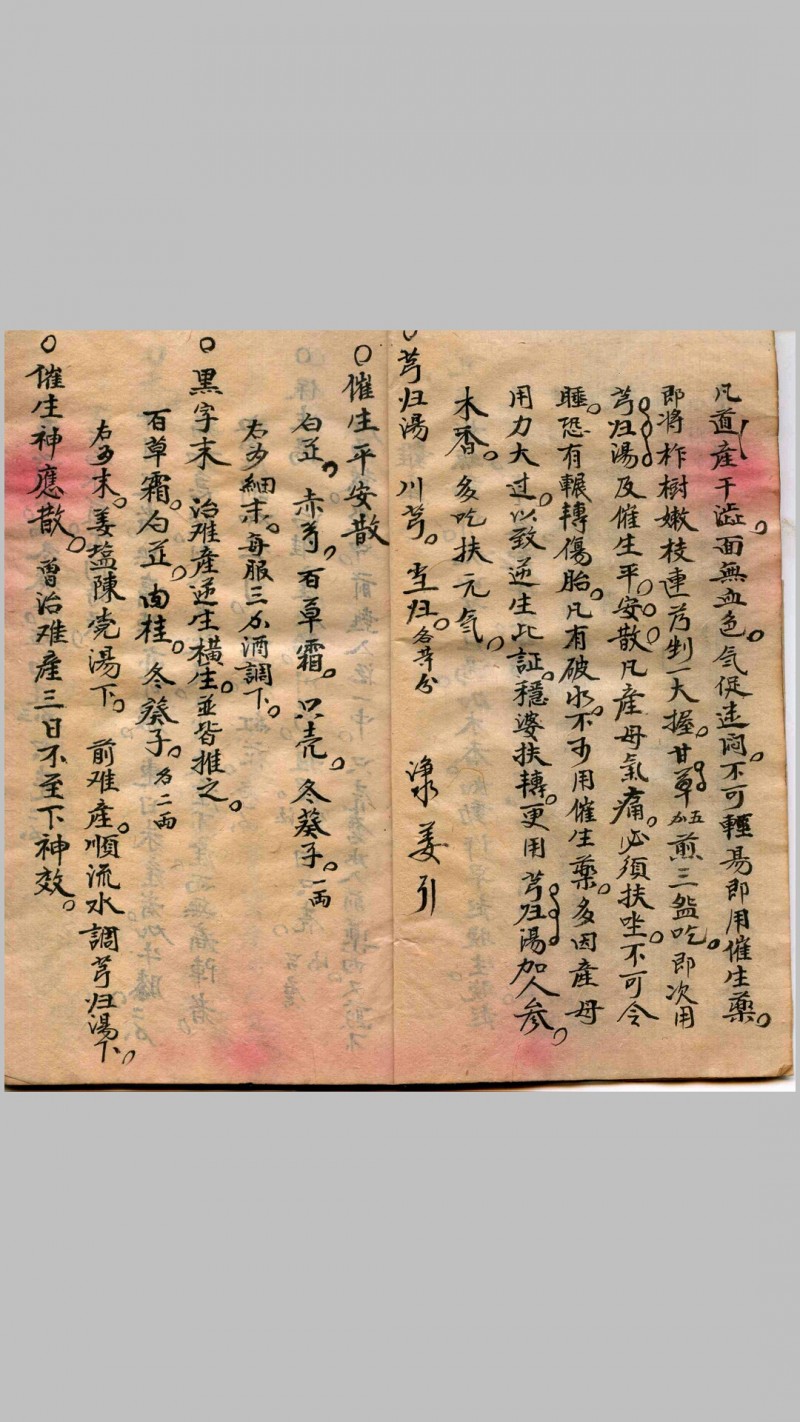 凡道產干澁。面無血色。气促速悶。不可輕易即用催生藥。
即將柞樹嫩枝連芀剉一大握。甘草加五煎三盌吃。即次用
芎归湯及催生平安散。凡產母氣痛。必須扶坐。不可令
睡。恐有輾轉傷胎。凡有破水。不可用催生藥。多因產母
用力大过。以致逆生此証。穩婆扶轉。更用芎归湯加人参。
木香。多吃扶元气。
○芎归湯 川芎。当归。各等分 淨水姜引
○催生平安散
白芷。赤芍。百草霜。只壳。冬葵子。一両
右為細末。每服三分酒調下。
○黑字末 治难產逆生橫生。並皆推之。
百草霜。白芷。肉桂。冬葵子。各二両
右為末。姜塩陳壳湯下。前难產。順流水調芎归湯下。
○催生神應散。曾治难產三日不至下神效。